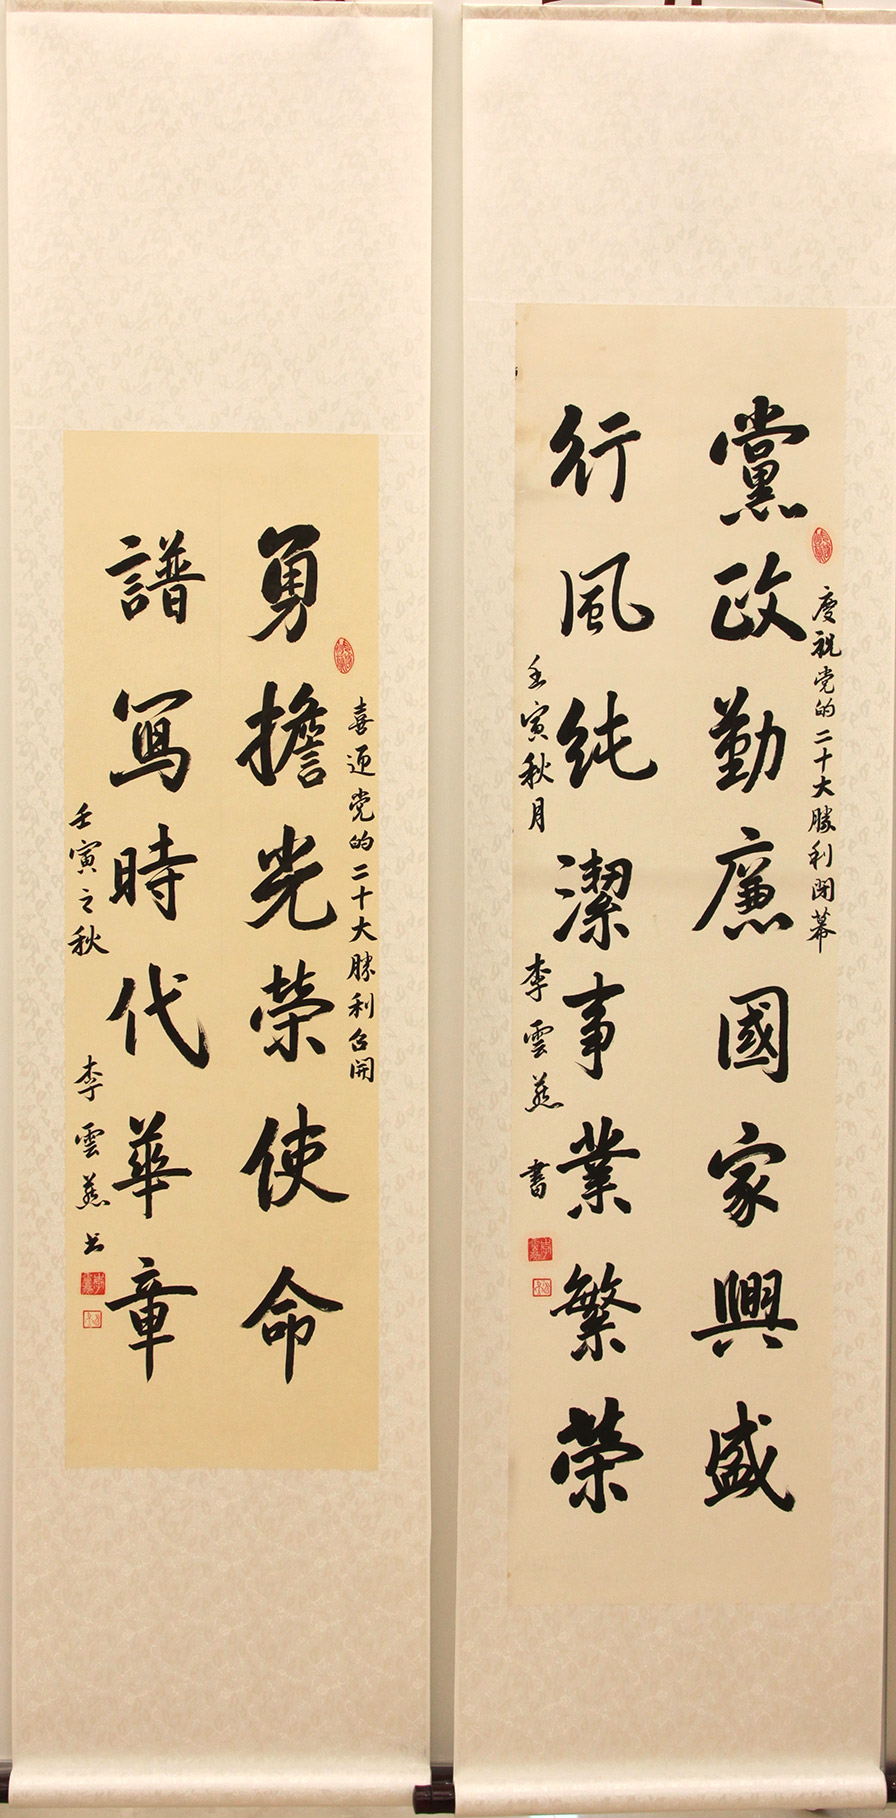 黨政勤廉國家興盛
慶祝党的二十大勝利闭幕
行風純潔事業繁榮
壬寅秋月 李雲燕 書
勇擔光榮使命
喜迎党的二十大勝利召開
譜寫時代華章
壬寅之秋 李雲燕书